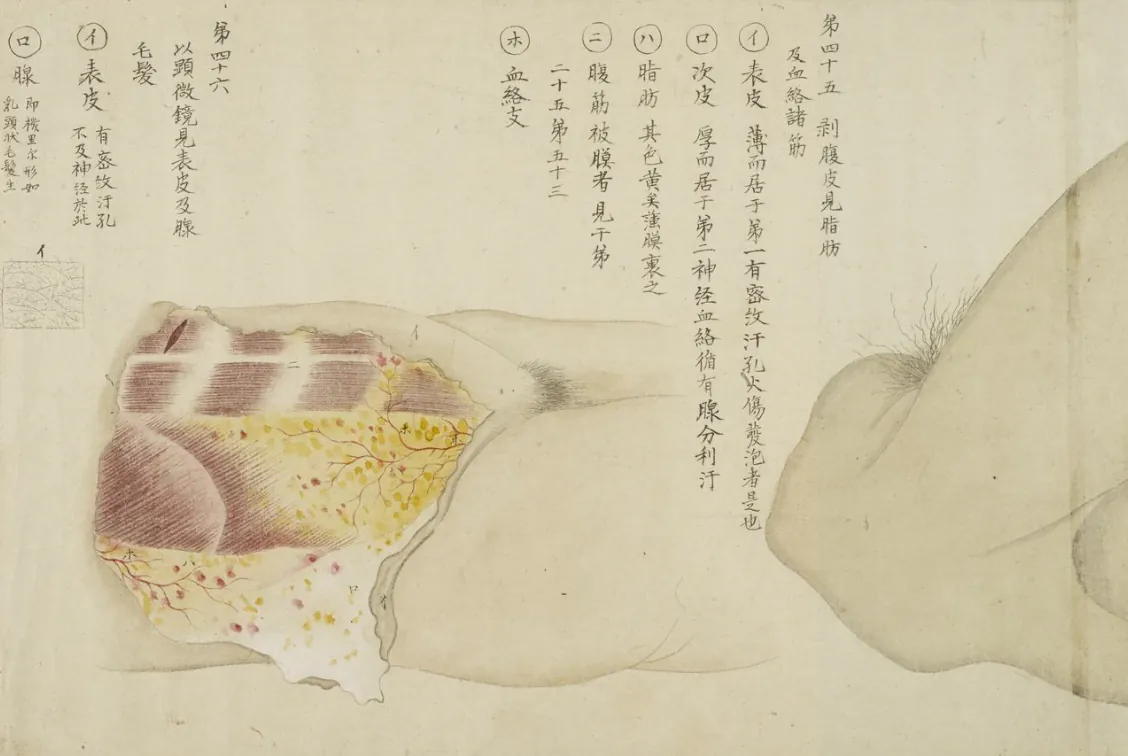 第四十五 剥腹皮見脂肪
及血絡諸筋
イ 表皮 薄而居于第一有密紋汗孔火傷發泡者是也
ロ 次皮 厚而居于第二神経血絡循有腺分利汗
ハ 脂肪 其色黄矣薄膜裹之
ニ 腹筋被膜者見于第
二十五第五十三
ホ 血絡支
第四十六
以顕微鏡見表皮及腺
毛髪
イ 表皮 有密紋汗孔
不及神経於此
ロ 腺 即機里尓形如
乳頭状毛髪生
イ
イ
ニ
ホ
ホ
ホ
ハ
ロ
イ